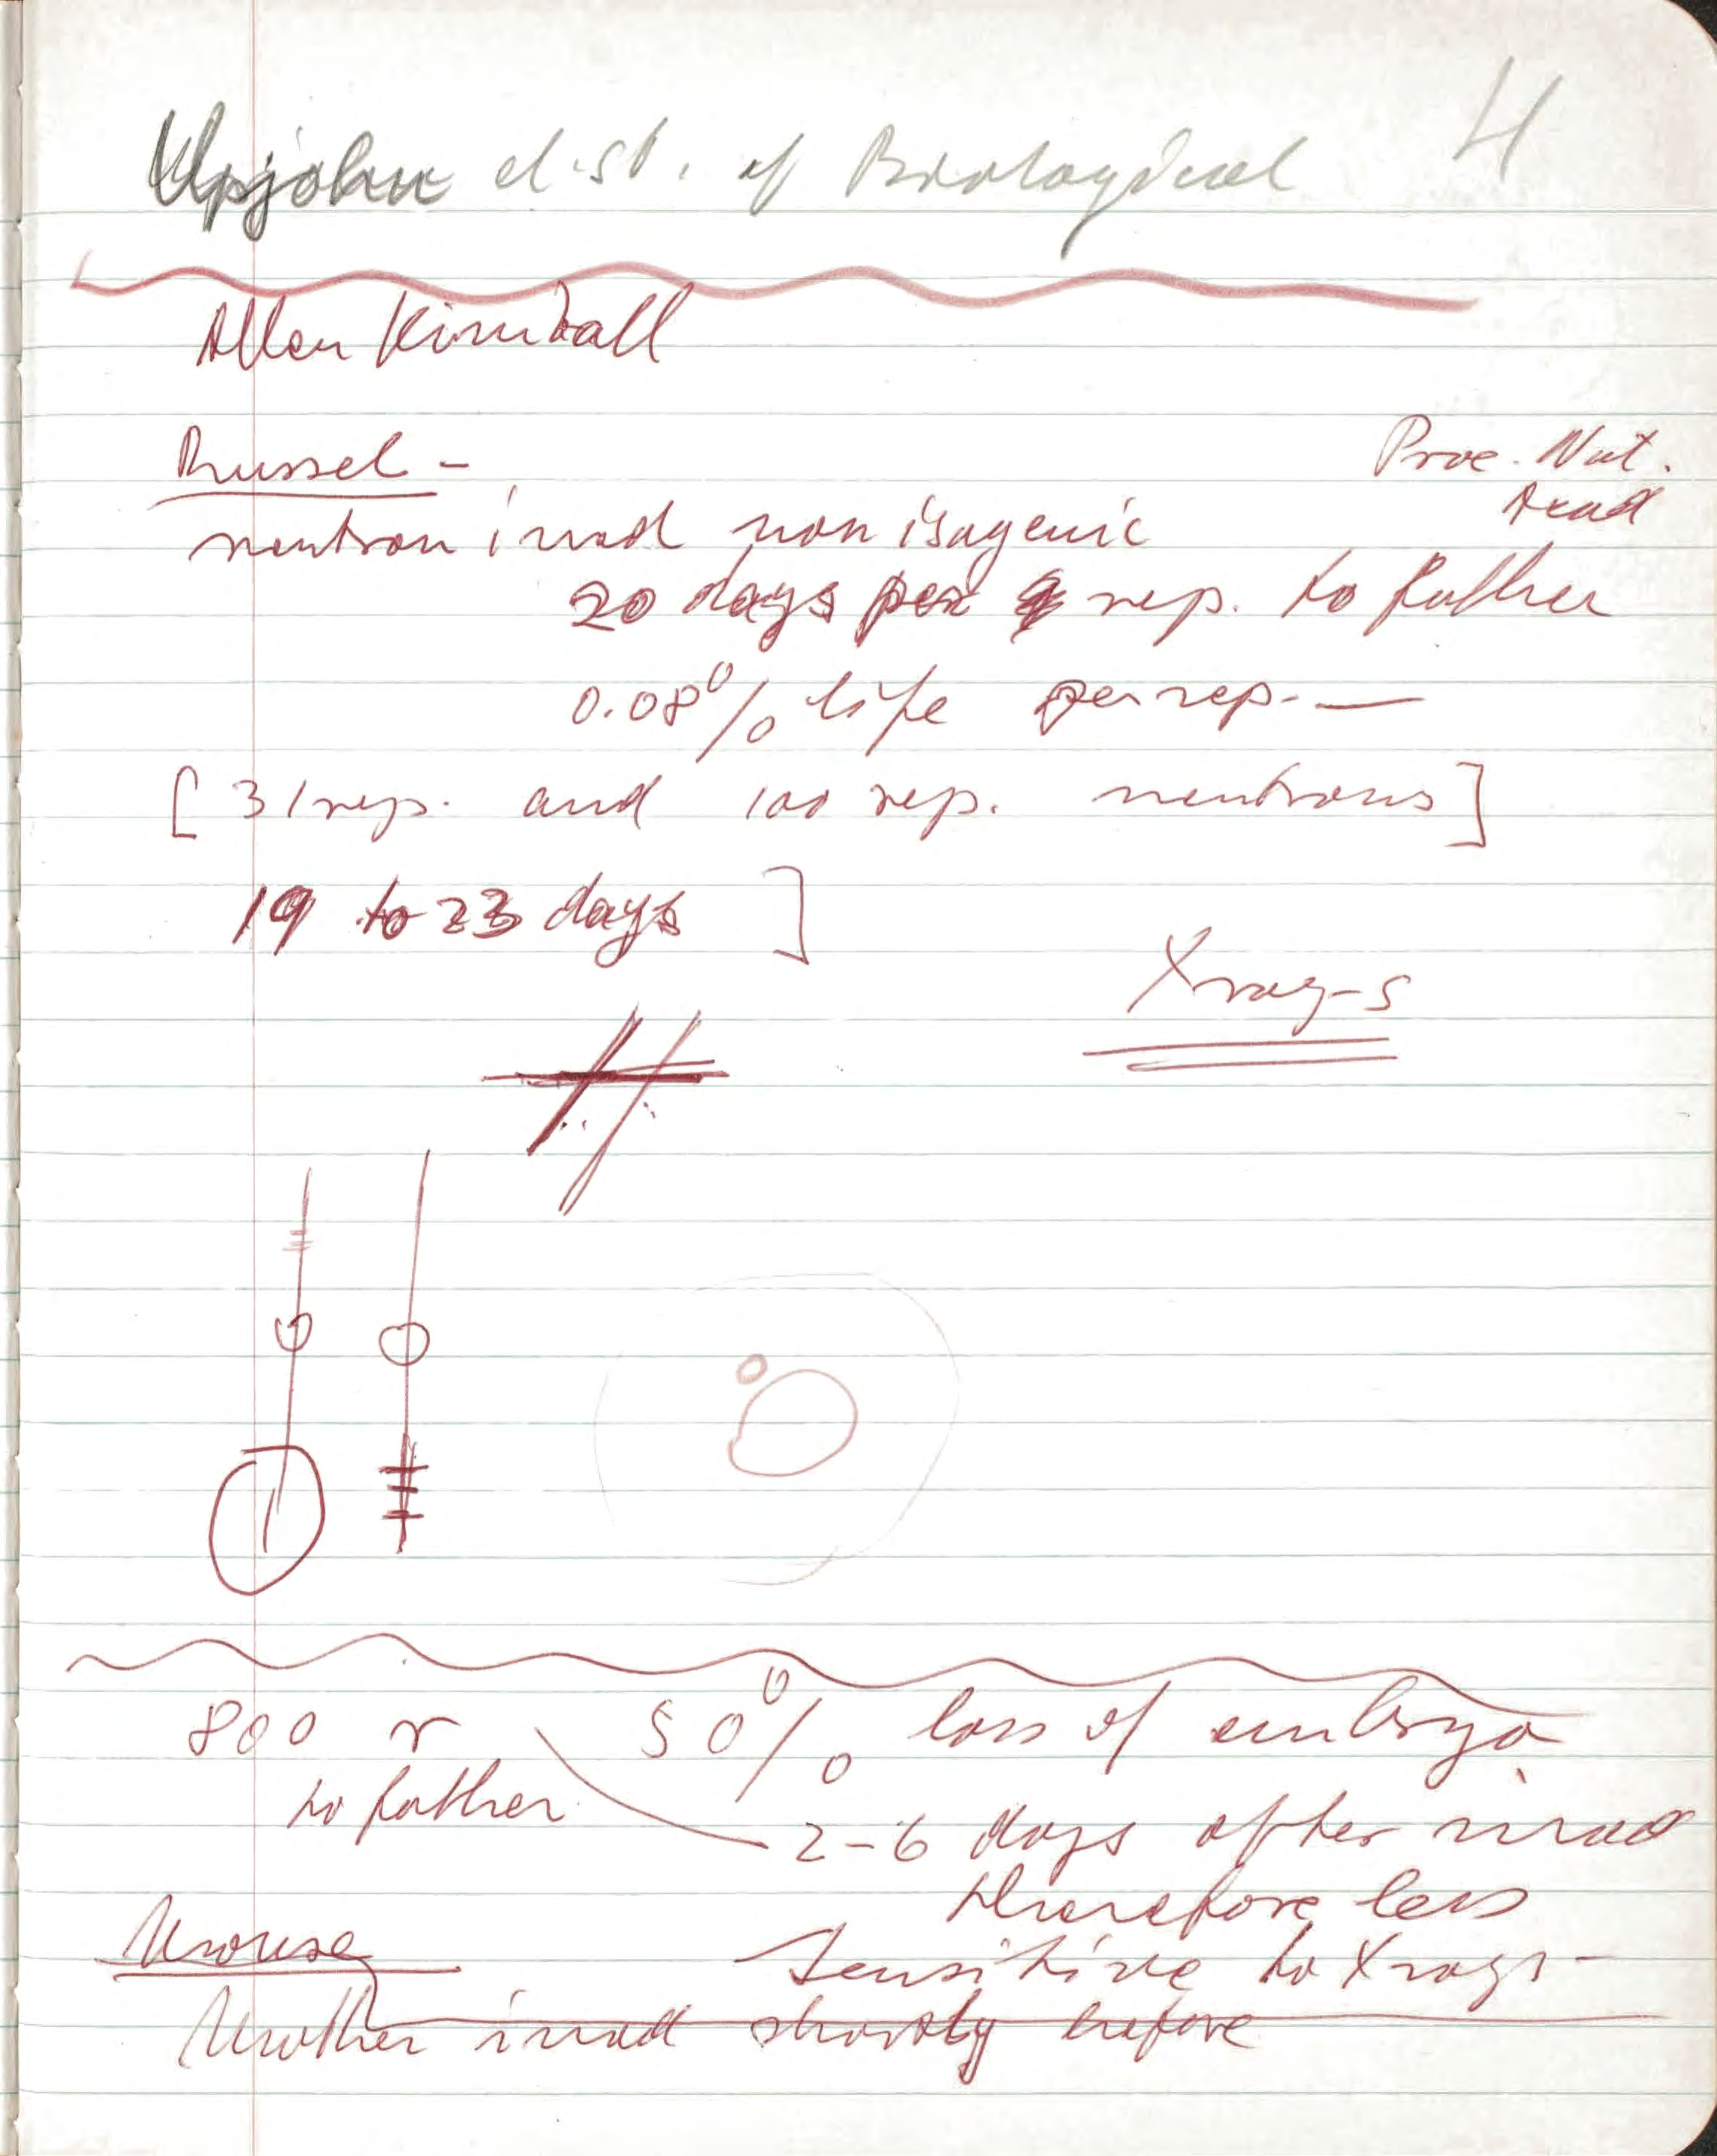 4
Upjohn d.st. of Biological
Allen Kimball
Russel -
Proc. Nat.
Acad
neutron irrad non isogenic
20 days per rep. to father
0.08% life per rep. —
[ 31 rep. and 100 rep. neutrons ]
19 to 23 days ]
Xray-s
800 r 50% loss of embryo
to father
2-6 days after irrad
therefore less
Mouse sensitive to Xrays -
Mother irrad shortly before